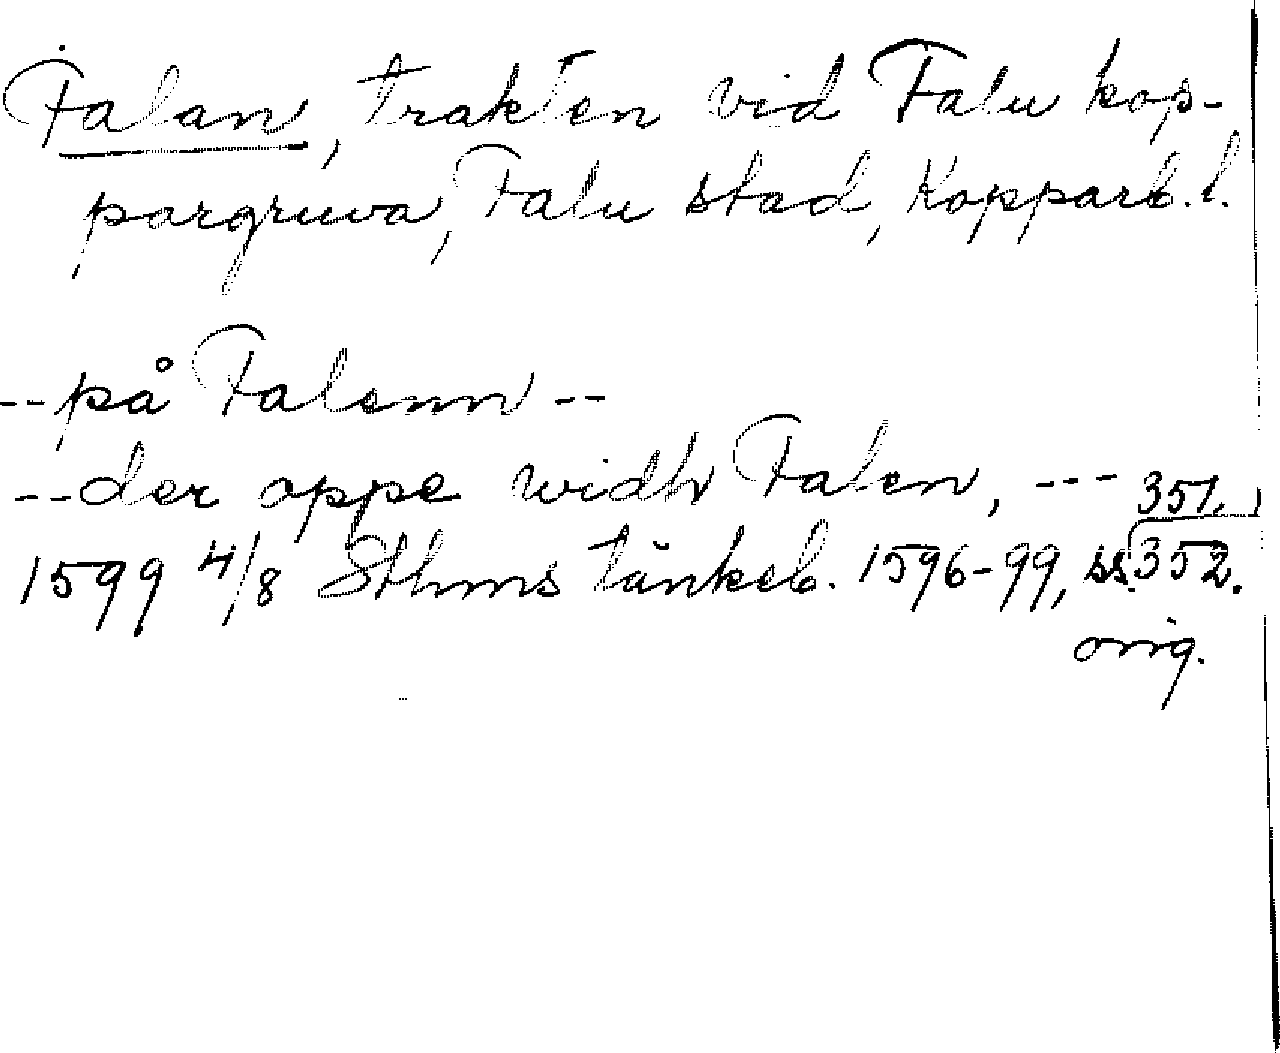 Falan, trakten vid Falu kop-
pargruva, Falu stad, Kopparb. l.
-- på Falenn --
-- der oppe widh Falen, --- 351,
1599 4/8 Sthms tänkeb. 1596-99, ss. 352.
orig.